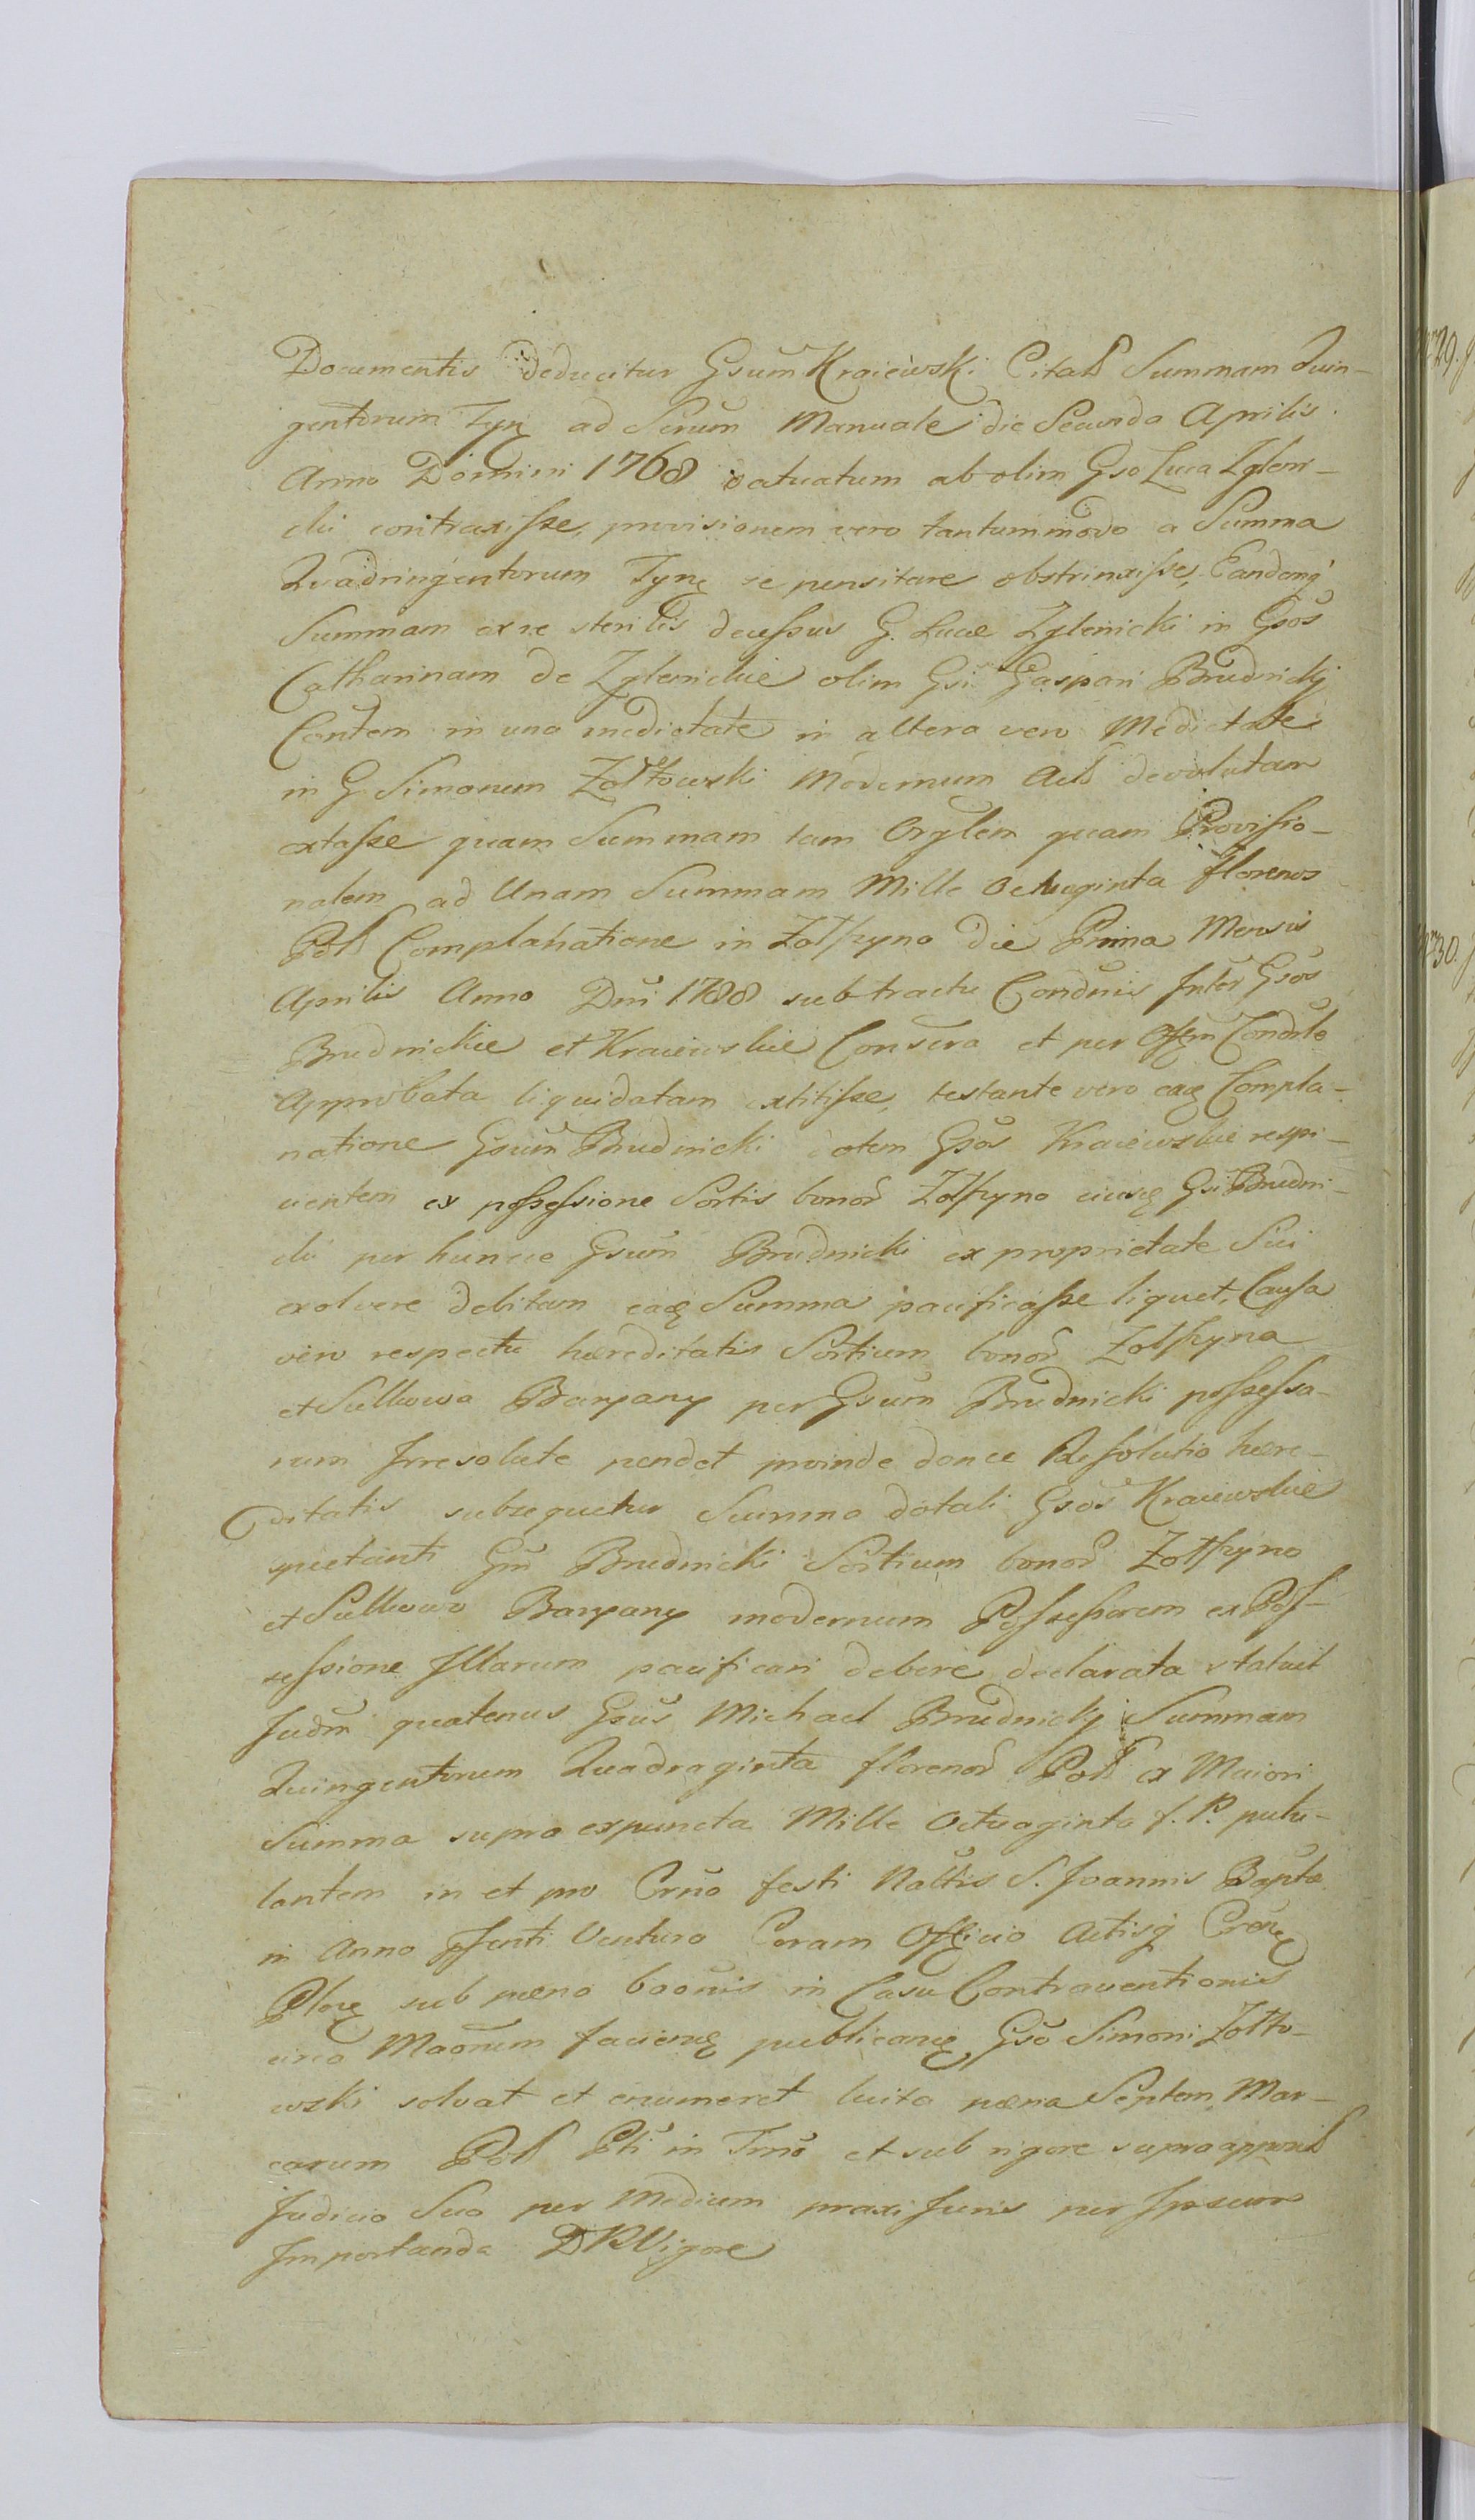 Documentis deducitur Gsum Kraiewski Citat Summam Quin-
gentorum Tyn ad Scrum Manuale die Secunda Aprilis
Anno Domini 1768 datuatum ab olim Gso Luca Zgleni-
cki contraxisse, provisionem vero tantummodo a Summa
Quadringentorum Tyn se pensitare obstrinxisse, Eandemq
Summam ex re sterilis decessus G. Lucæ Zglenicki in Gsos
Catharinam de Zglenickie olim Gsi Gaspari Brudnickj
Contem in una medietate in altera vero Medietate
in G Simonem Zołtowski Modernum Act devolutam
extasse quam Summam tam Orglem quam Provisio-
nalem ad Unam Summam Mille Octuaginta florenos
Pol Complanatione in Zolskyno die Prima Mensis
Aprilis Anno Dni 1788 subtractu Condnis Inter Gsos
Brudnickie et Kraiewskie Conscra et per Offm Condle
Approbata liquidatam extitisse, testante vero eaq Compla-
natione Gsum Brudnicki dotem Gsos Kraiewskie respi-
cientem ex possessione Sortis bonor Zolskyno eiusq Gsi Brudni-
cki per hunce Gsum Brudnicki ex proprietate Sui
exolvere debitam eaq Summa pacificasse liquet, Causa
vero respectu hæreditatis Sortium bonor Zolskyna
et Sulkowa Baryany per Gsum Brudnicki possessa-
rum Irresolute pendet proinde donec Resolutio hære-
ditatis subsequetur Summa dotali Gsos Kraiewskie
spectanti Gm Brudnicki Sortium bonor Zolskyno
et Sulkowo Baryany modernum Possessorem ex Pos-
sessione Illarum pacificari debere declarata statuit
Judm quatenus Gsus Michael Brudnickj Summam
Quingentorum Quadraginta florenor Pol ex Maiori
Summa supra expuncta Mille Octuaginta f. P. putu-
lantem in et pro Crno festi Naltis S. Joannis Baptæ
in Anno psenti Venturo Coram Officio Actisq
sub pæna baonis in Casu Contraventionis
circa Maonum publicanq Gso Simoni Zolto-
wski solvat et enumeret luita pæna Septem Mar-
carum Pol Pti in Trno et sub rigore supra
Judicio Suo per Medium praxi Juris per Ipsum
Importanda D Vigore